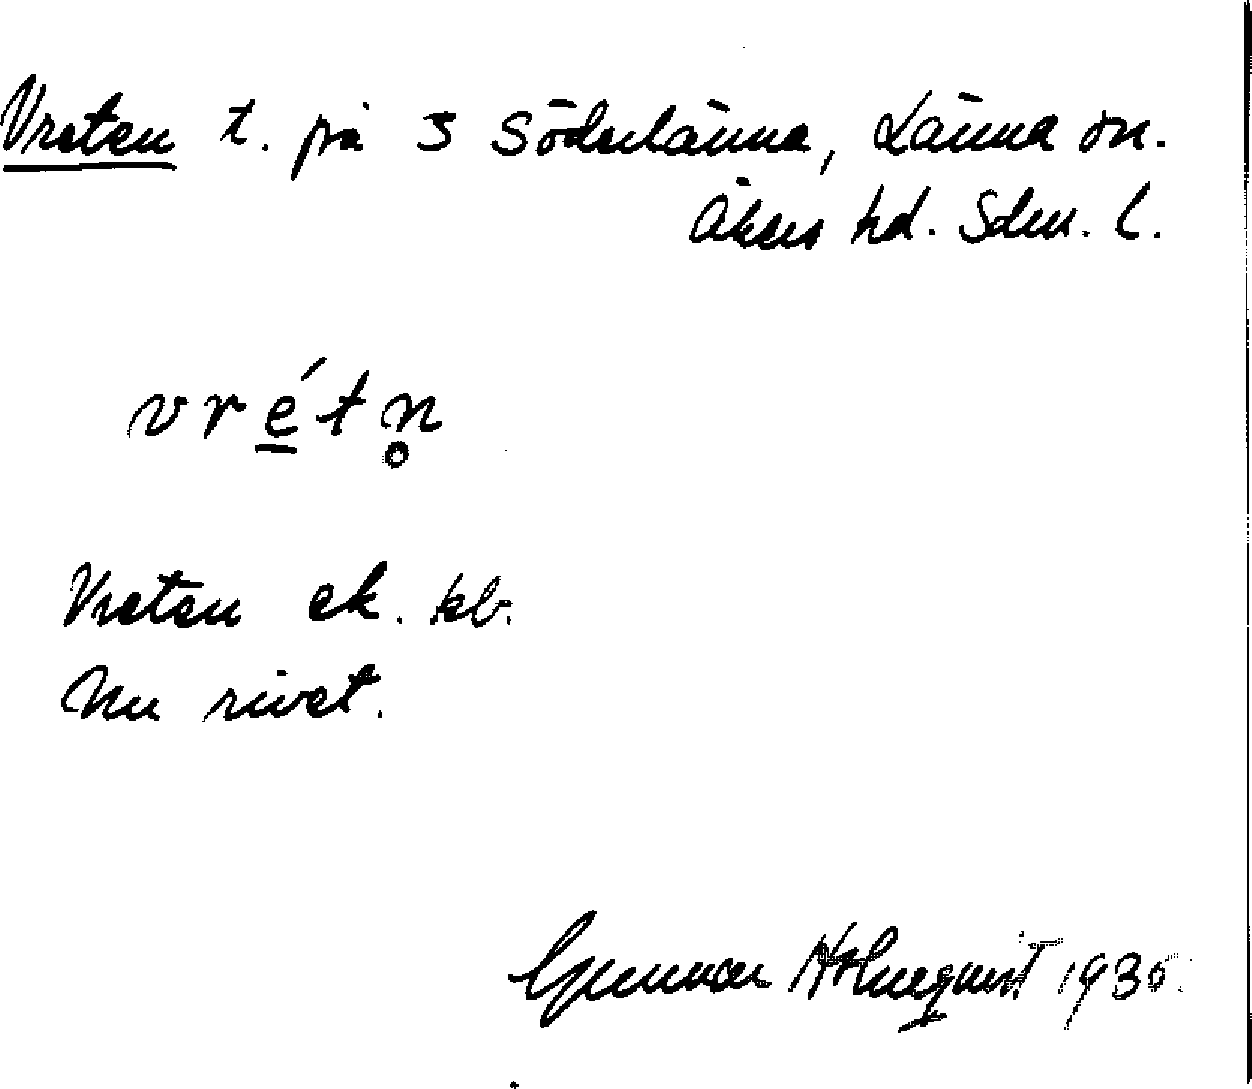 Vreten t. på S Söderlänna, Länna sn.
Åkers hd. Sdm. l.
vrétn̥
Vreten ek. kb.
Nu rivet.
Gunnar Holmquist 1935.